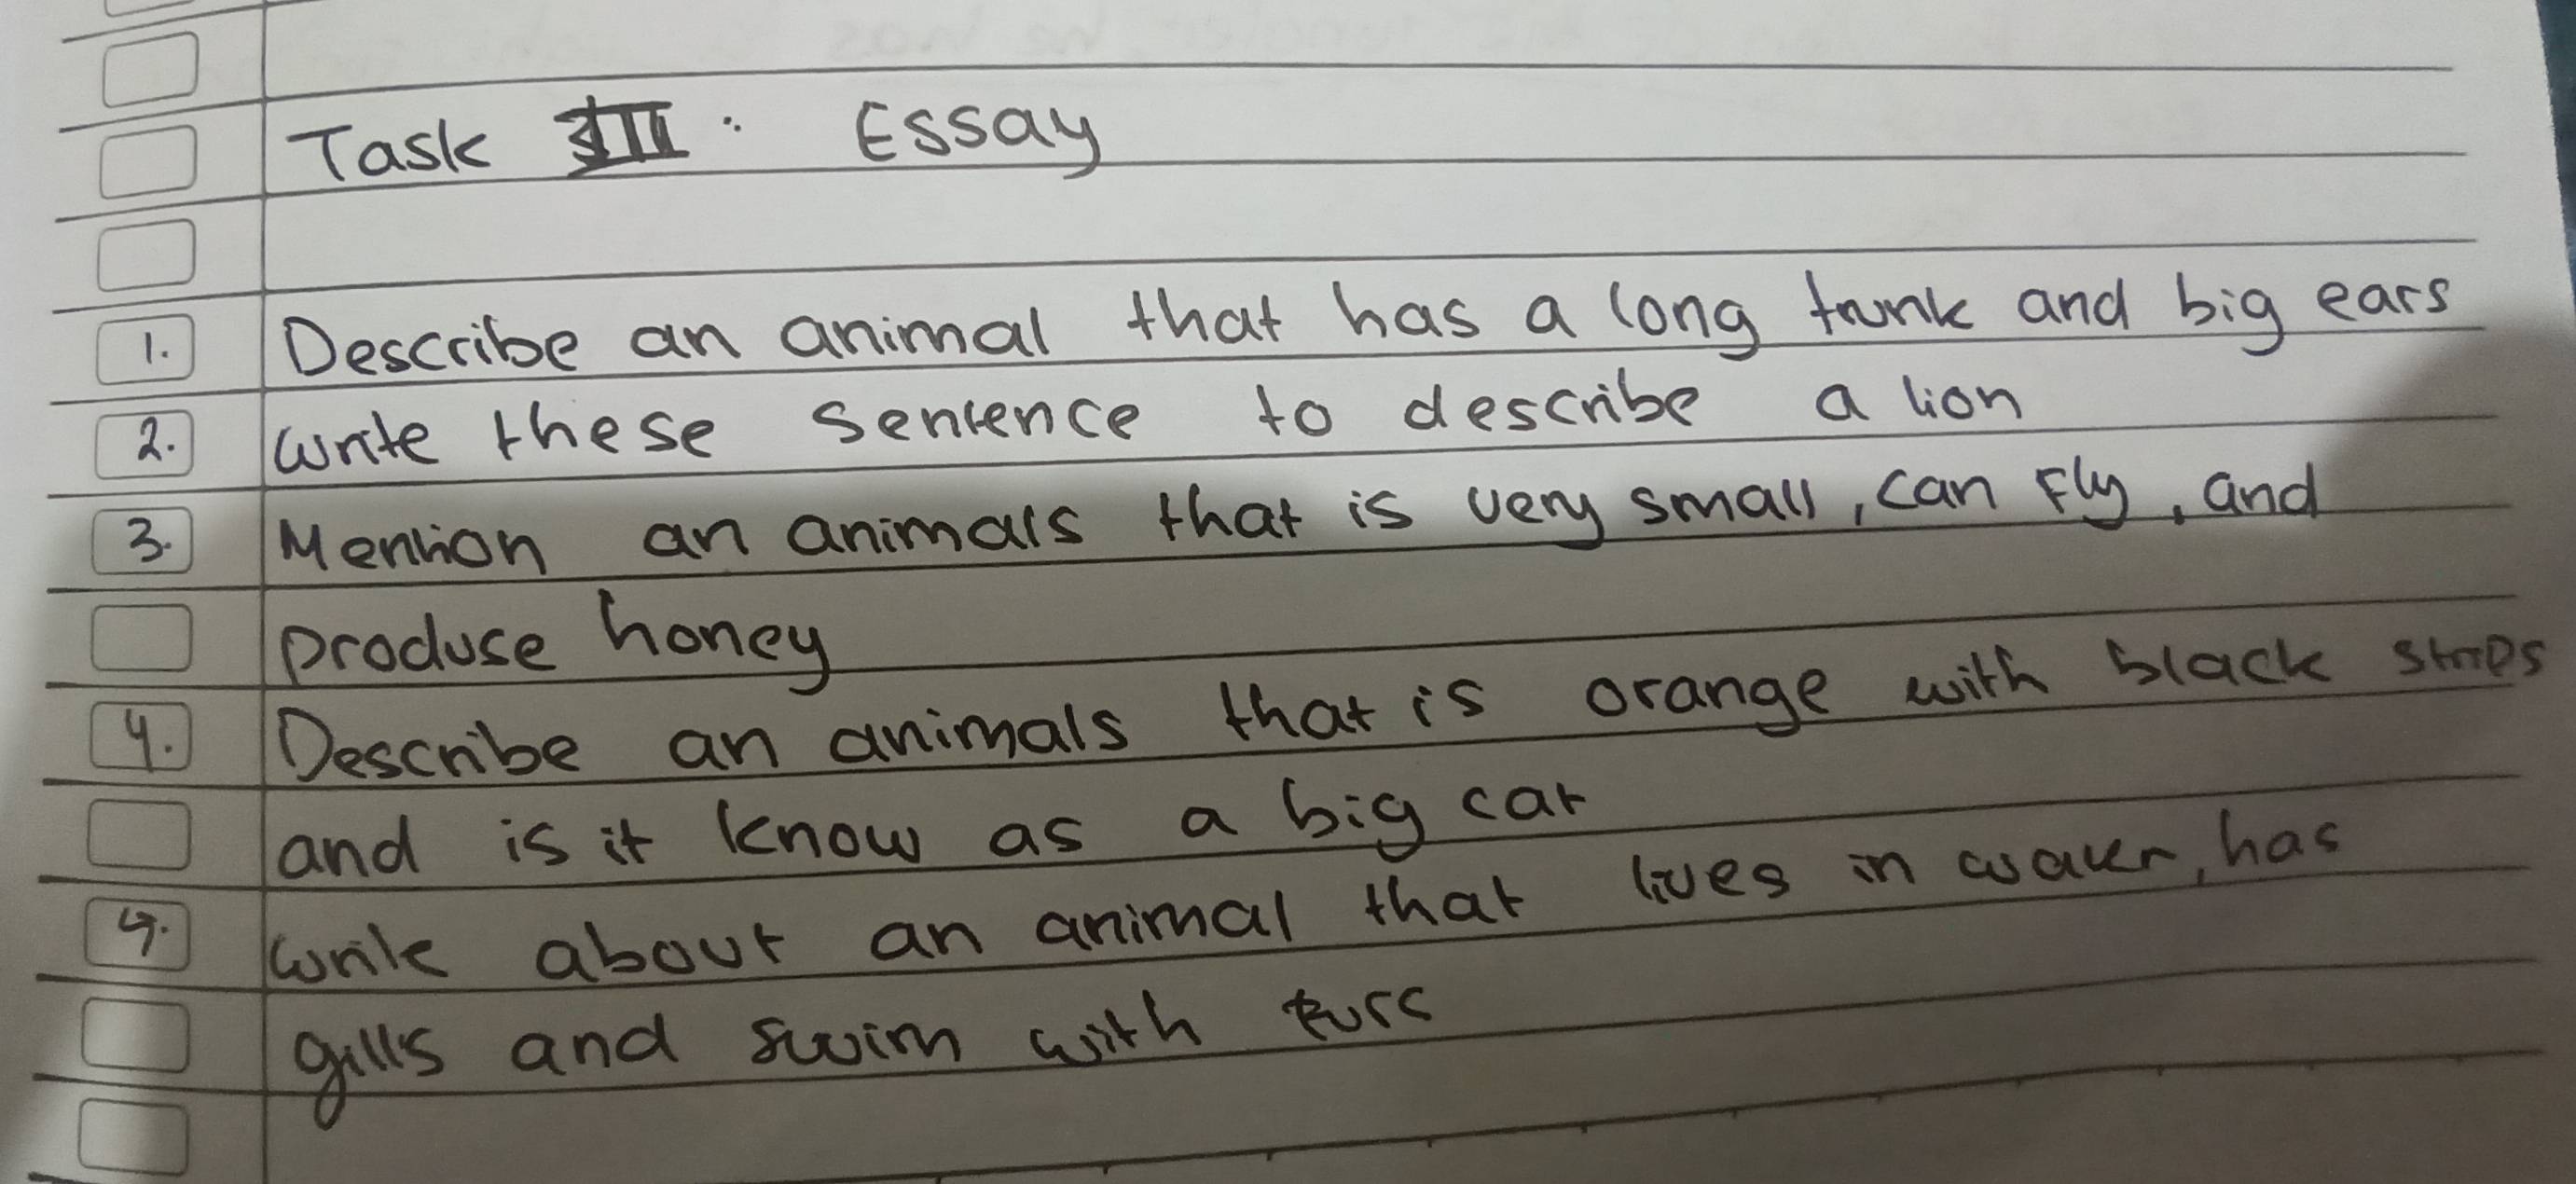 Task III : Essay
1. Describe an animal that has a long trunk and big ears
2. write these sentence to describe a lion
3. Mention an animals that is very small, can fly, and
produse honey
4. Describe an animals that is orange with black strips
and is it know as a big cat
write about an animal that lives in water, has
gills and swim with